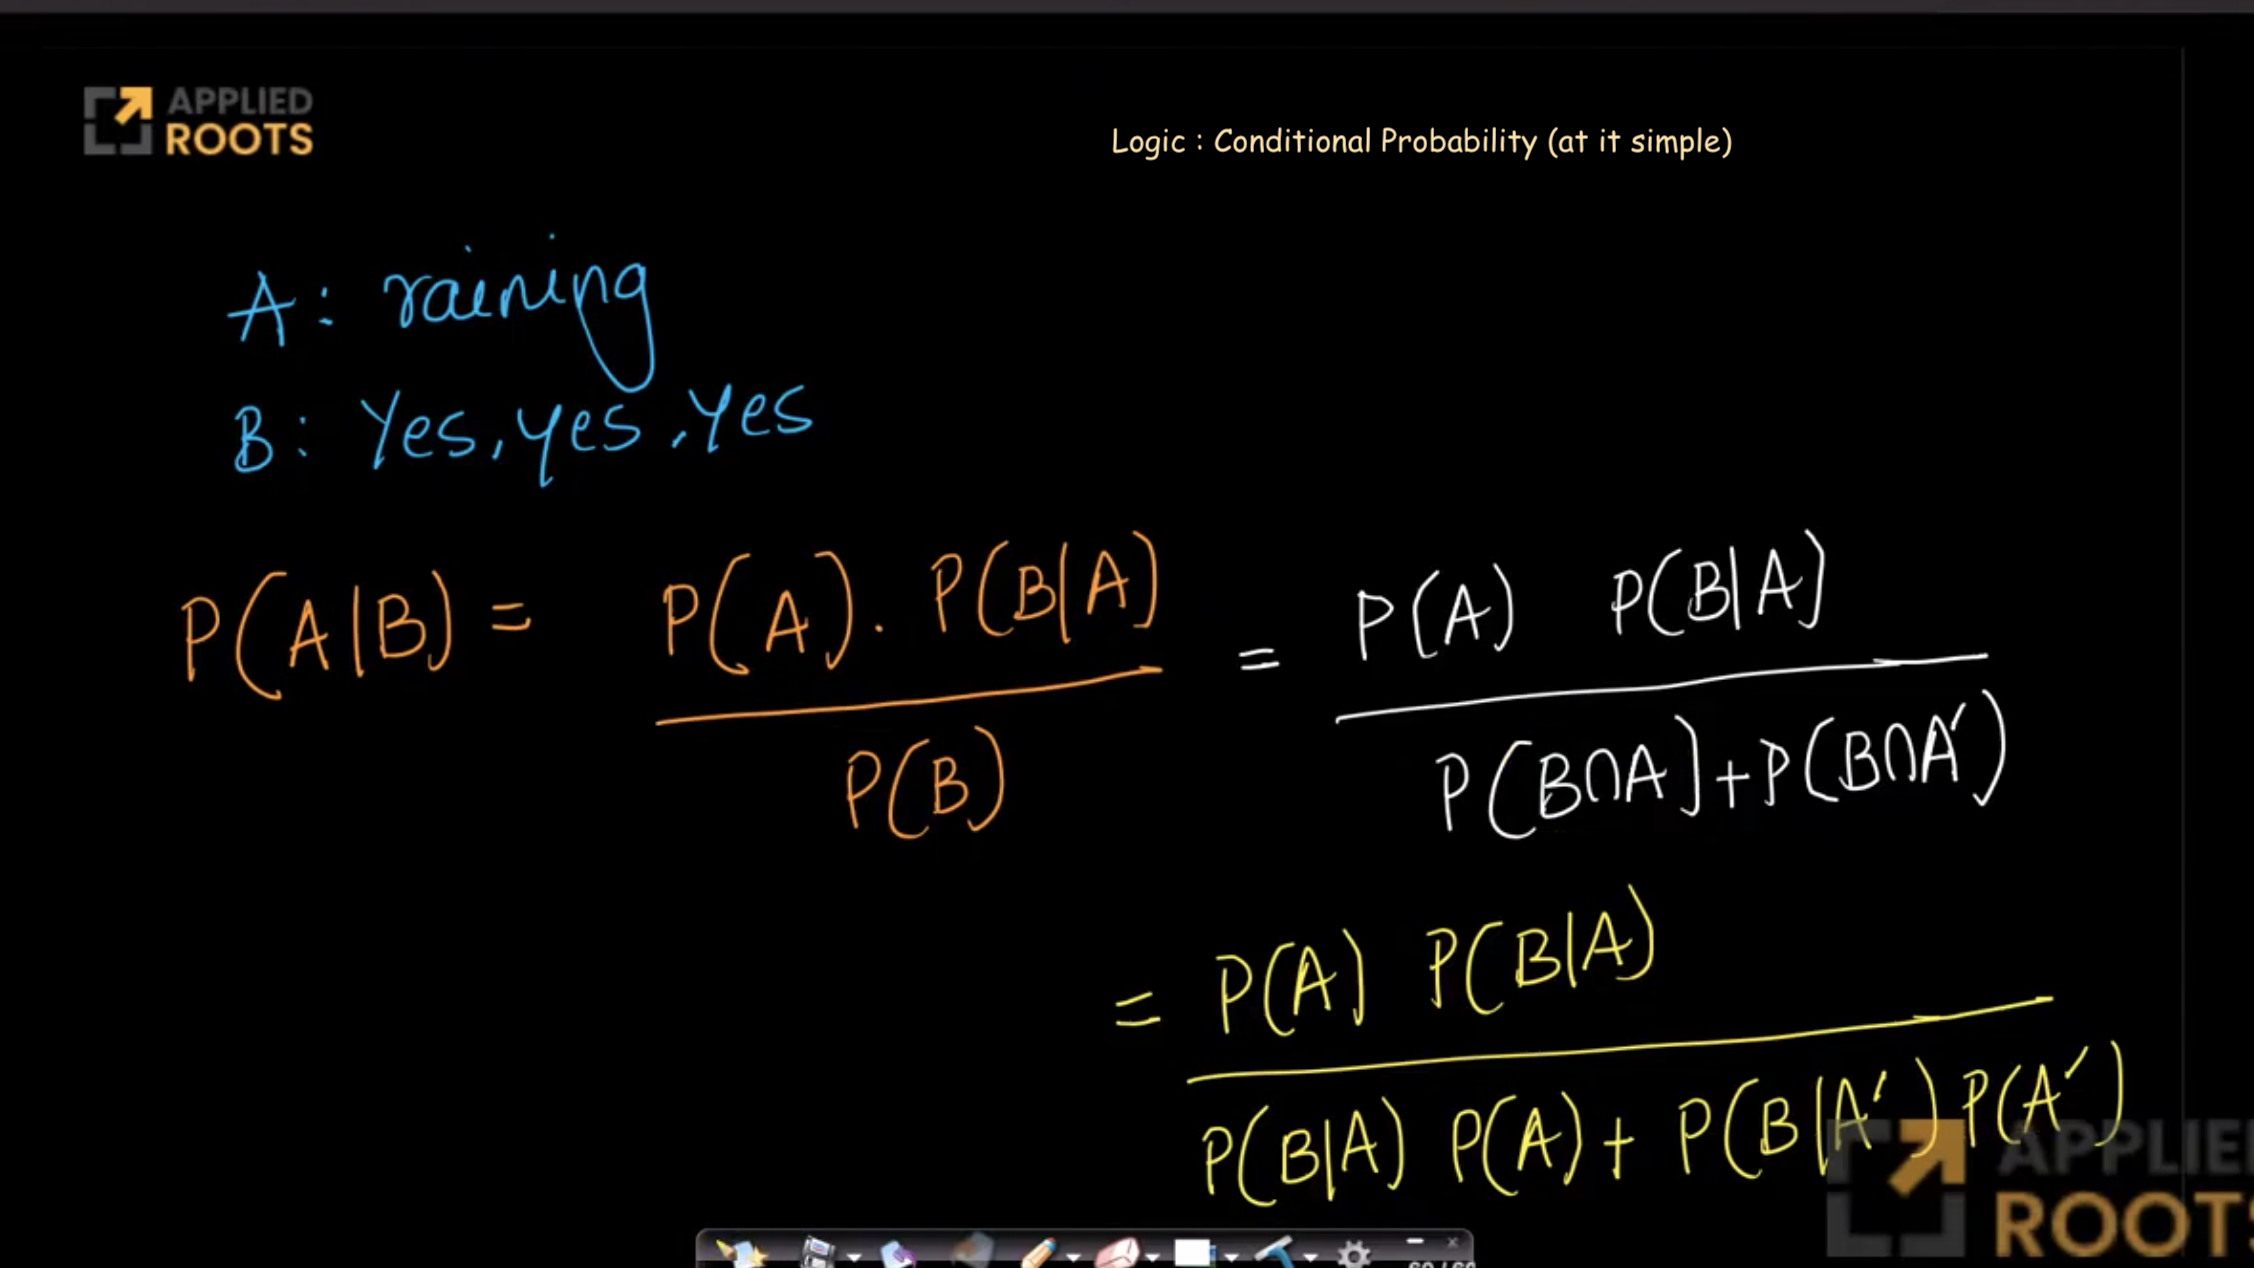 APPLIED
ROOTS
Logic : Conditional Probability (at it simple)
A: raining
B: Yes, yes, yes
P(A|B) = P(A) . P(B|A) / P(B) = P(A) P(B|A) / P(B∩A) + P(B∩A')
= P(A) P(B|A) / P(B|A) P(A) + P(B|A') P(A')
APPLIED
ROOTS